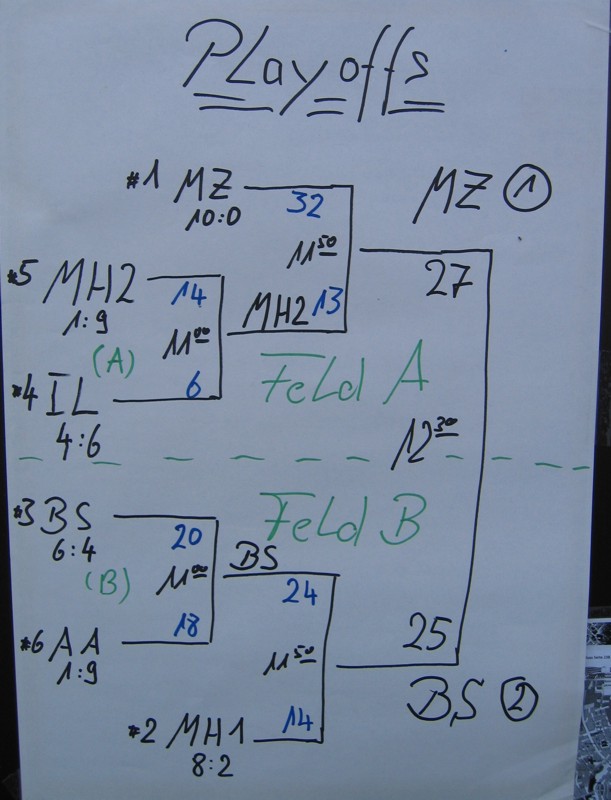 Playoffs
#1 MZ 32
10:0
MZ ①
11⁵⁰
27
#5 MH2 14
1:9
MH2 13
(A) 11⁰⁰
Feld A
#4 IL 6
4:6
12³⁰
Feld B
#3 BS 20
6:4
BS 24
(B) 11⁰⁰
#6 AA 18
1:9
11⁵⁰
25
BS ②
#2 MH1 14
8:2